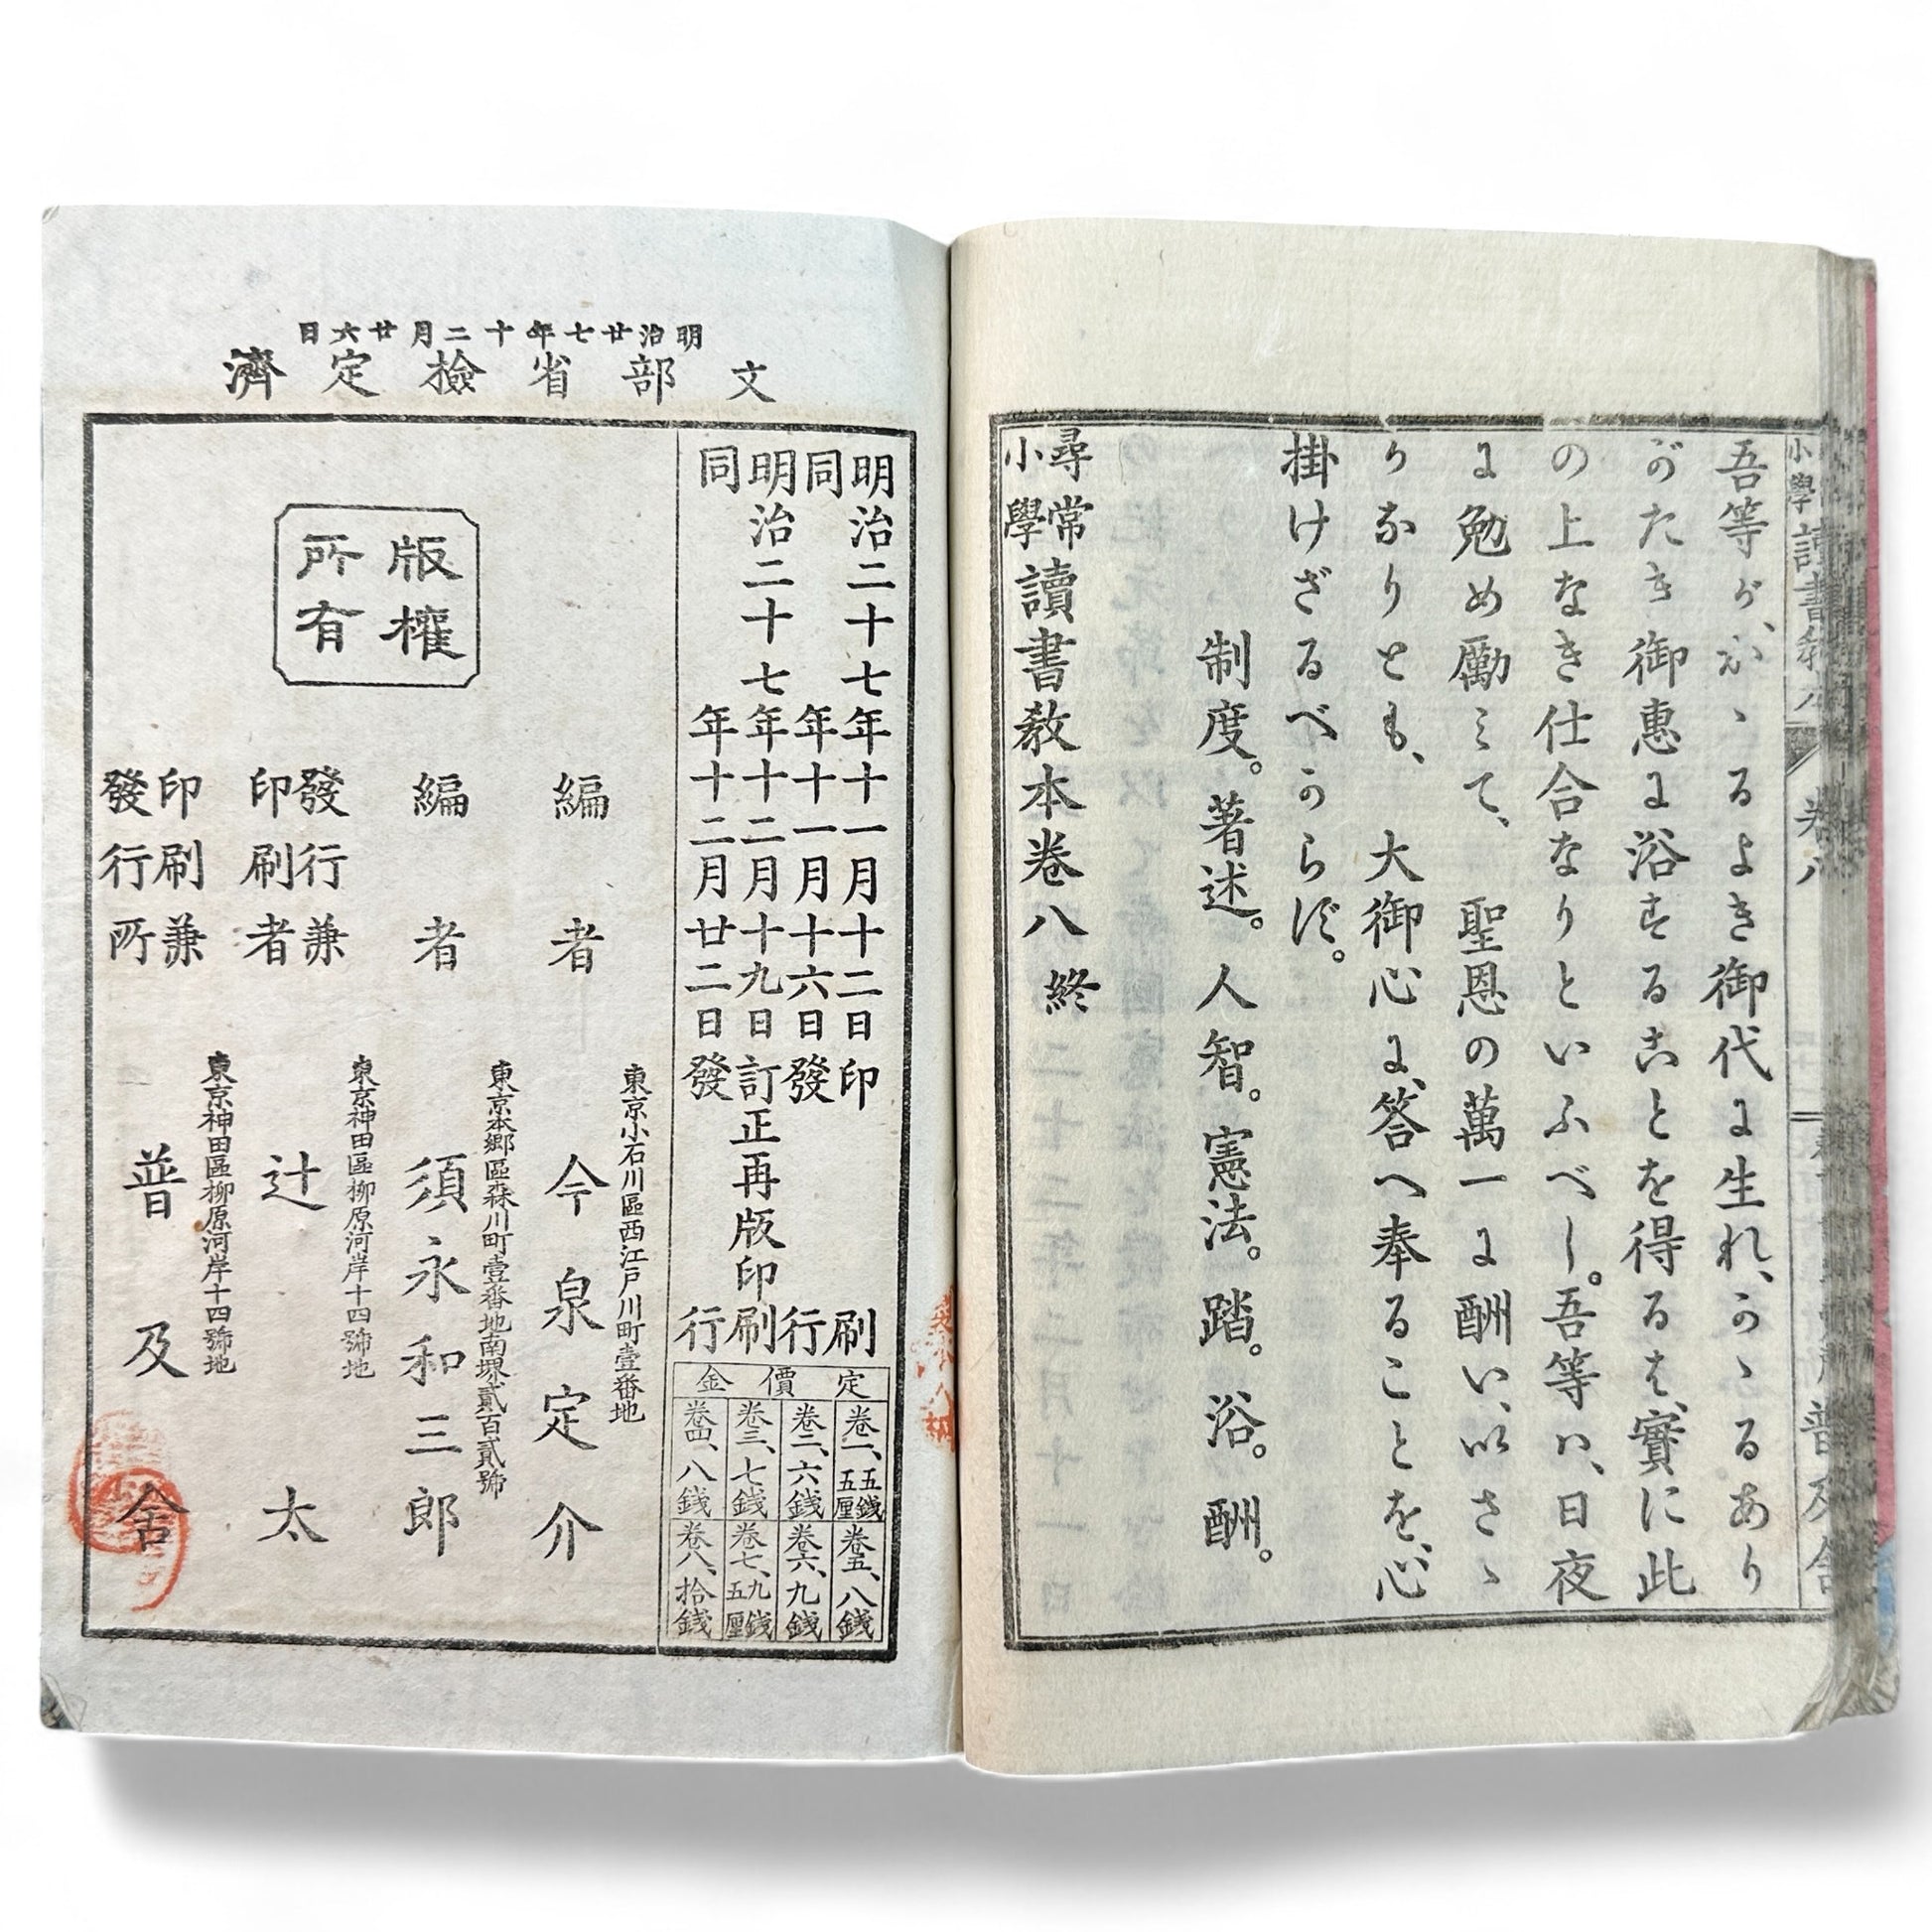 吾等が、かゝるよき御代に生れ、かゝるあり
がたき御惠に浴することを得るは、實に此
の上なき仕合なりといふべし。吾等ハ、日夜
に勉め勵ミて、聖恩の萬一に酬い、いさゝ
かなりとも、大御心に答へ奉ることを、心
掛けざるべからず。
制度。著述。人智。憲法。踏。浴。酬。
尋常小學讀書教本卷八終
明治廿七年十二月廿六日
文部省檢定濟
明治二十七年十一月十二日印刷
同年十一月十六日發行
明治二十七年十二月十九日訂正再版印刷
同年十二月廿二日發行
定價金
卷一、五錢五厘
卷二、六錢
卷三、七錢
卷四、八錢
卷五、八錢
卷六、九錢
卷七、九錢五厘
卷八、拾錢
版權所有
東京小石川區西江戸川町壹番地
編者 今泉定介
東京本郷區森川町壹番地南堺貳百貳號
編者 須永和三郎
東京神田區柳原河岸十四號地
發行兼印刷者 辻太
東京神田區柳原河岸十四號地
印刷兼發行所 普及舍